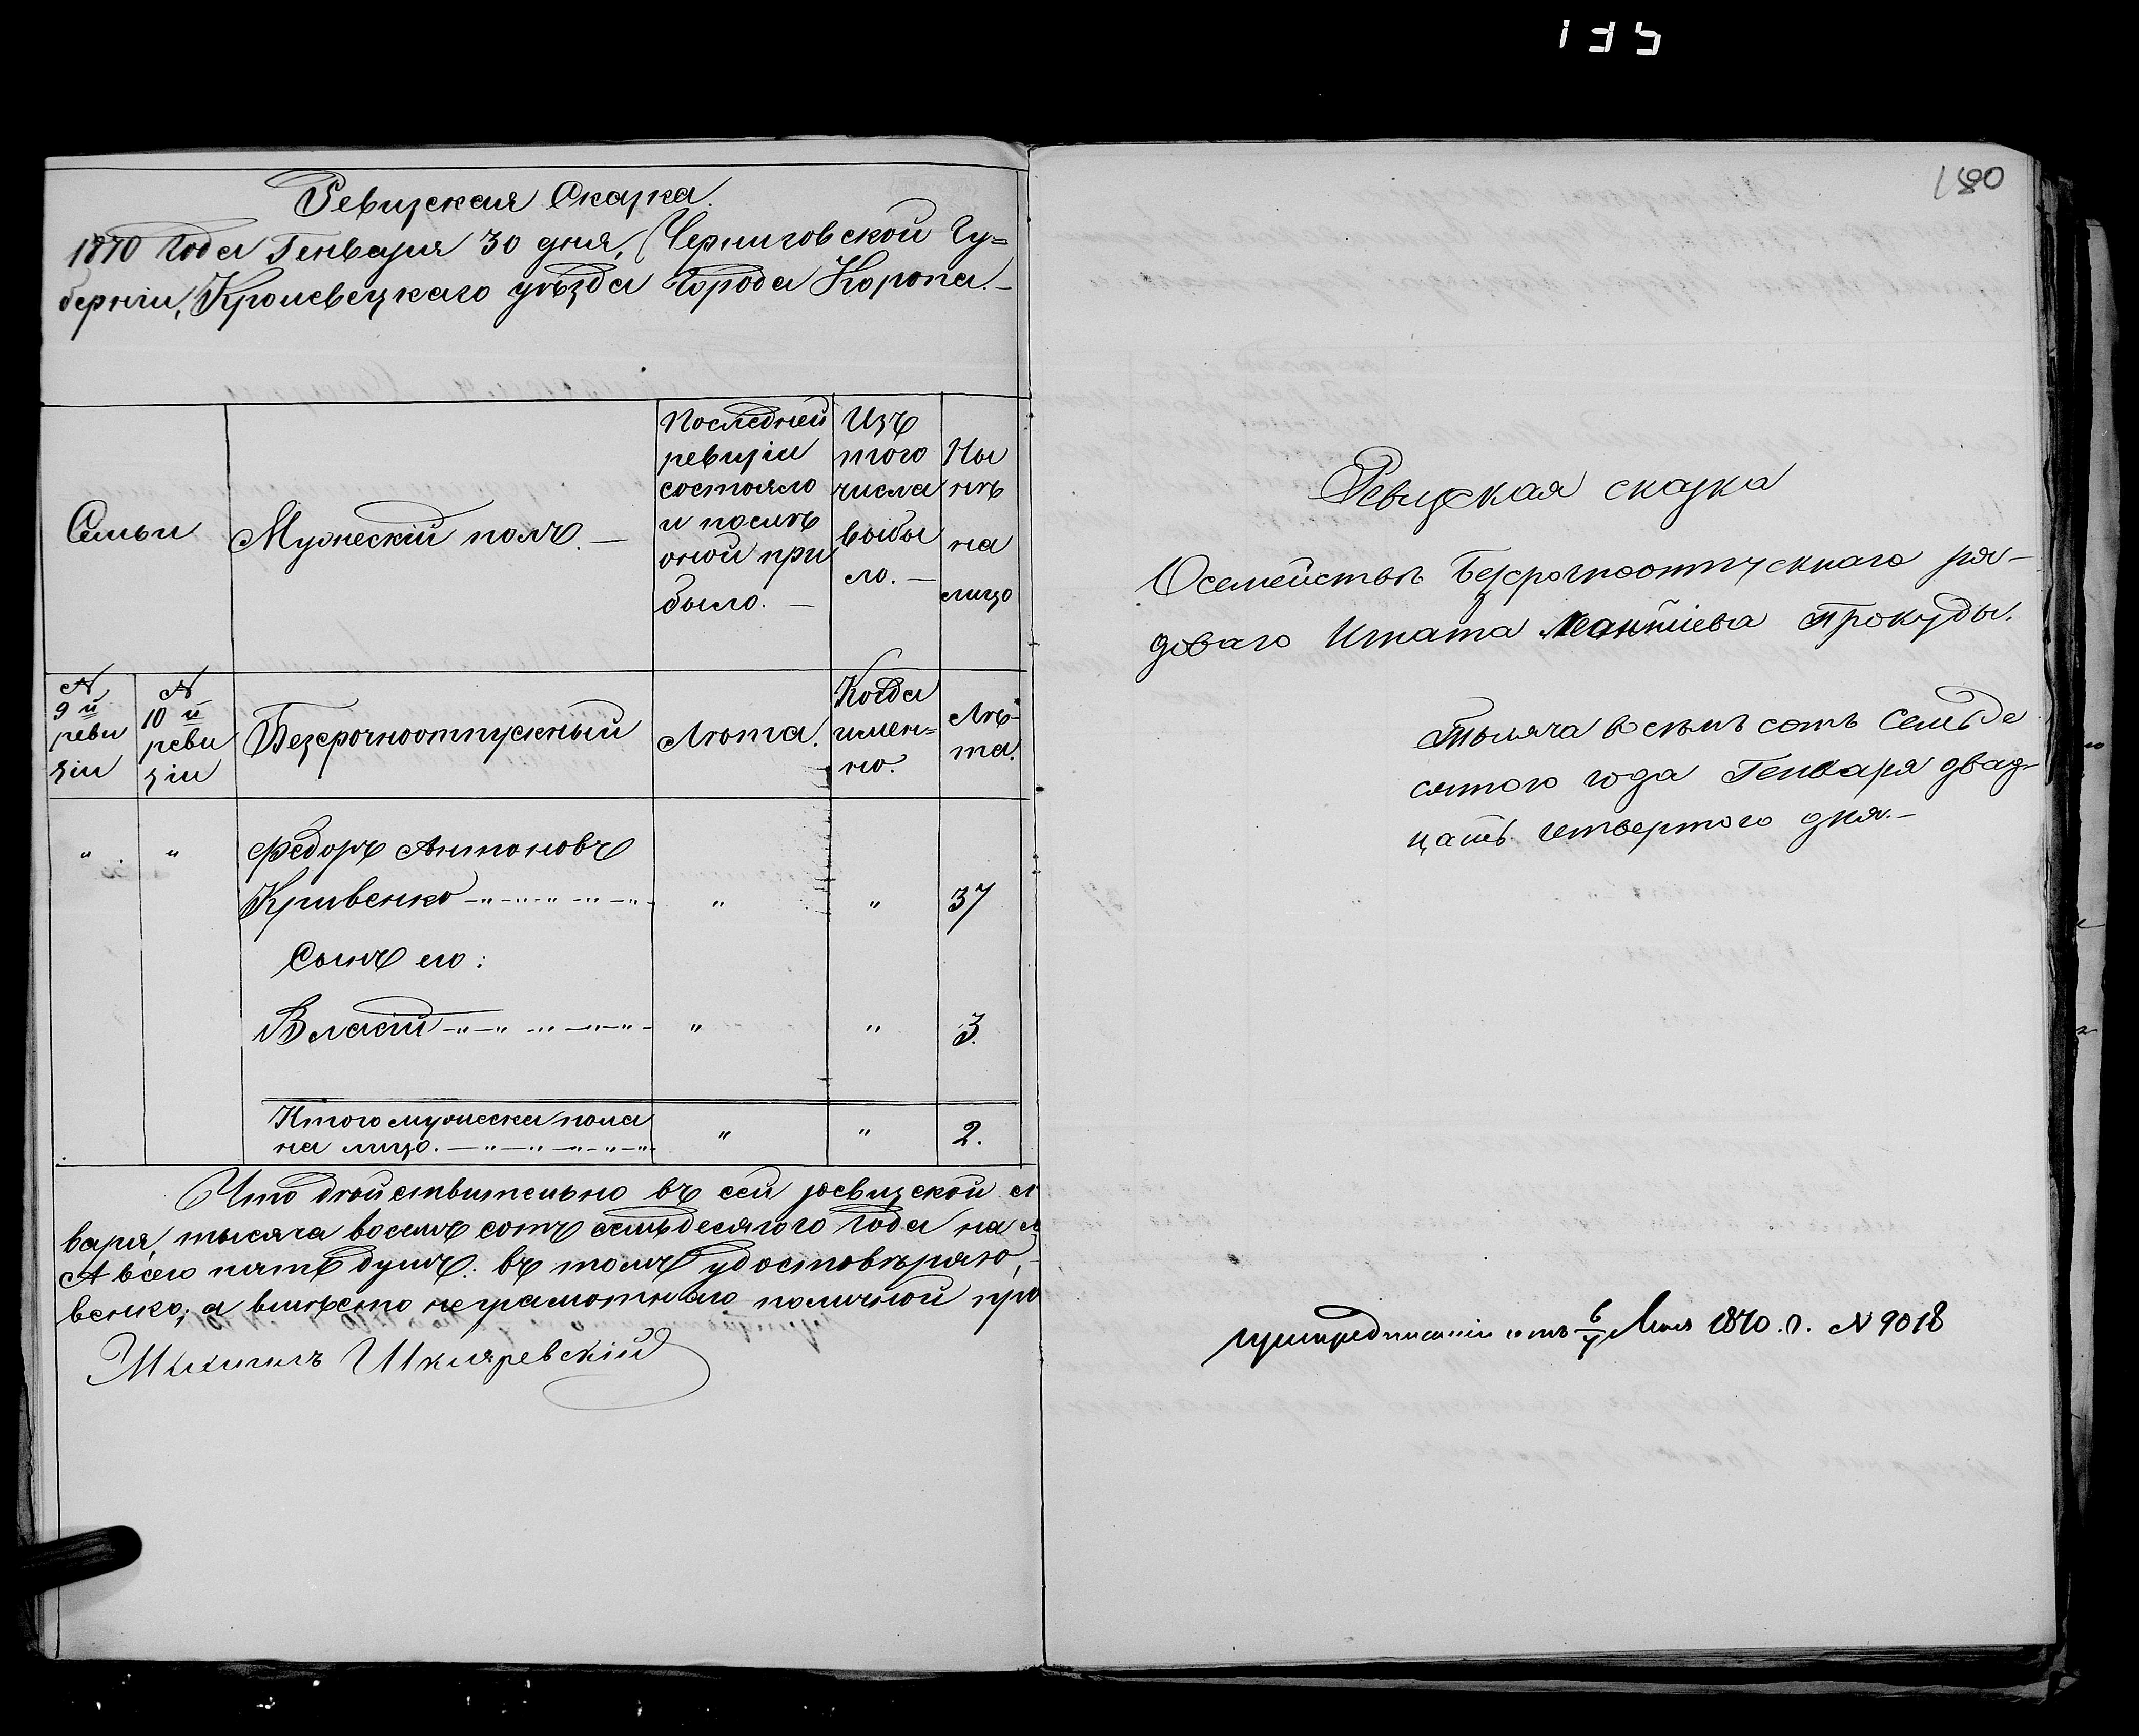 135
Ревизская Сказка.
1870 Года Генваря 30 дня, Черниговской Гу=
берніи, Кролевецкаго уѣзда Города Коропа.—
Семьи
Мужескій полъ.—
Последней
ревизіи
состояло
и послѣ
оной при
было.—
Изъ
того
числа
выбы
ло.—
Ны
нѣ
на
лицо
№
9й
реви
зіи
№
10й
реви
зіи
Безсрочноотпускный
Лѣта.
Когда
имен=
но.
Лѣ-
та.
" " Федоръ Антоновъ
Кривенко " " 37
Сынъ его:
Власій " " 3.
Итого мужеска пола
на лицо. " " 2.
Что дѣйствительно въ сей ревизской с
варя, тысяча восемъ сотъ семьдесятого Года на л
А всего пять душъ: въ томъ удостовѣряю,
венко, а вмѣсто неграмотнаго по личной про
Михаилъ Шкляревскій
180
Ревизская сказка
О семействѣ Безсрочноотпускнаго ря-
доваго Игната Леонтіева Прокуды.
Тысяча восемь сотъ Семьде
сятого года Генваря двад-
цать четвертого дня.—
предписаніи отъ 6/7 1870. г. № 9018